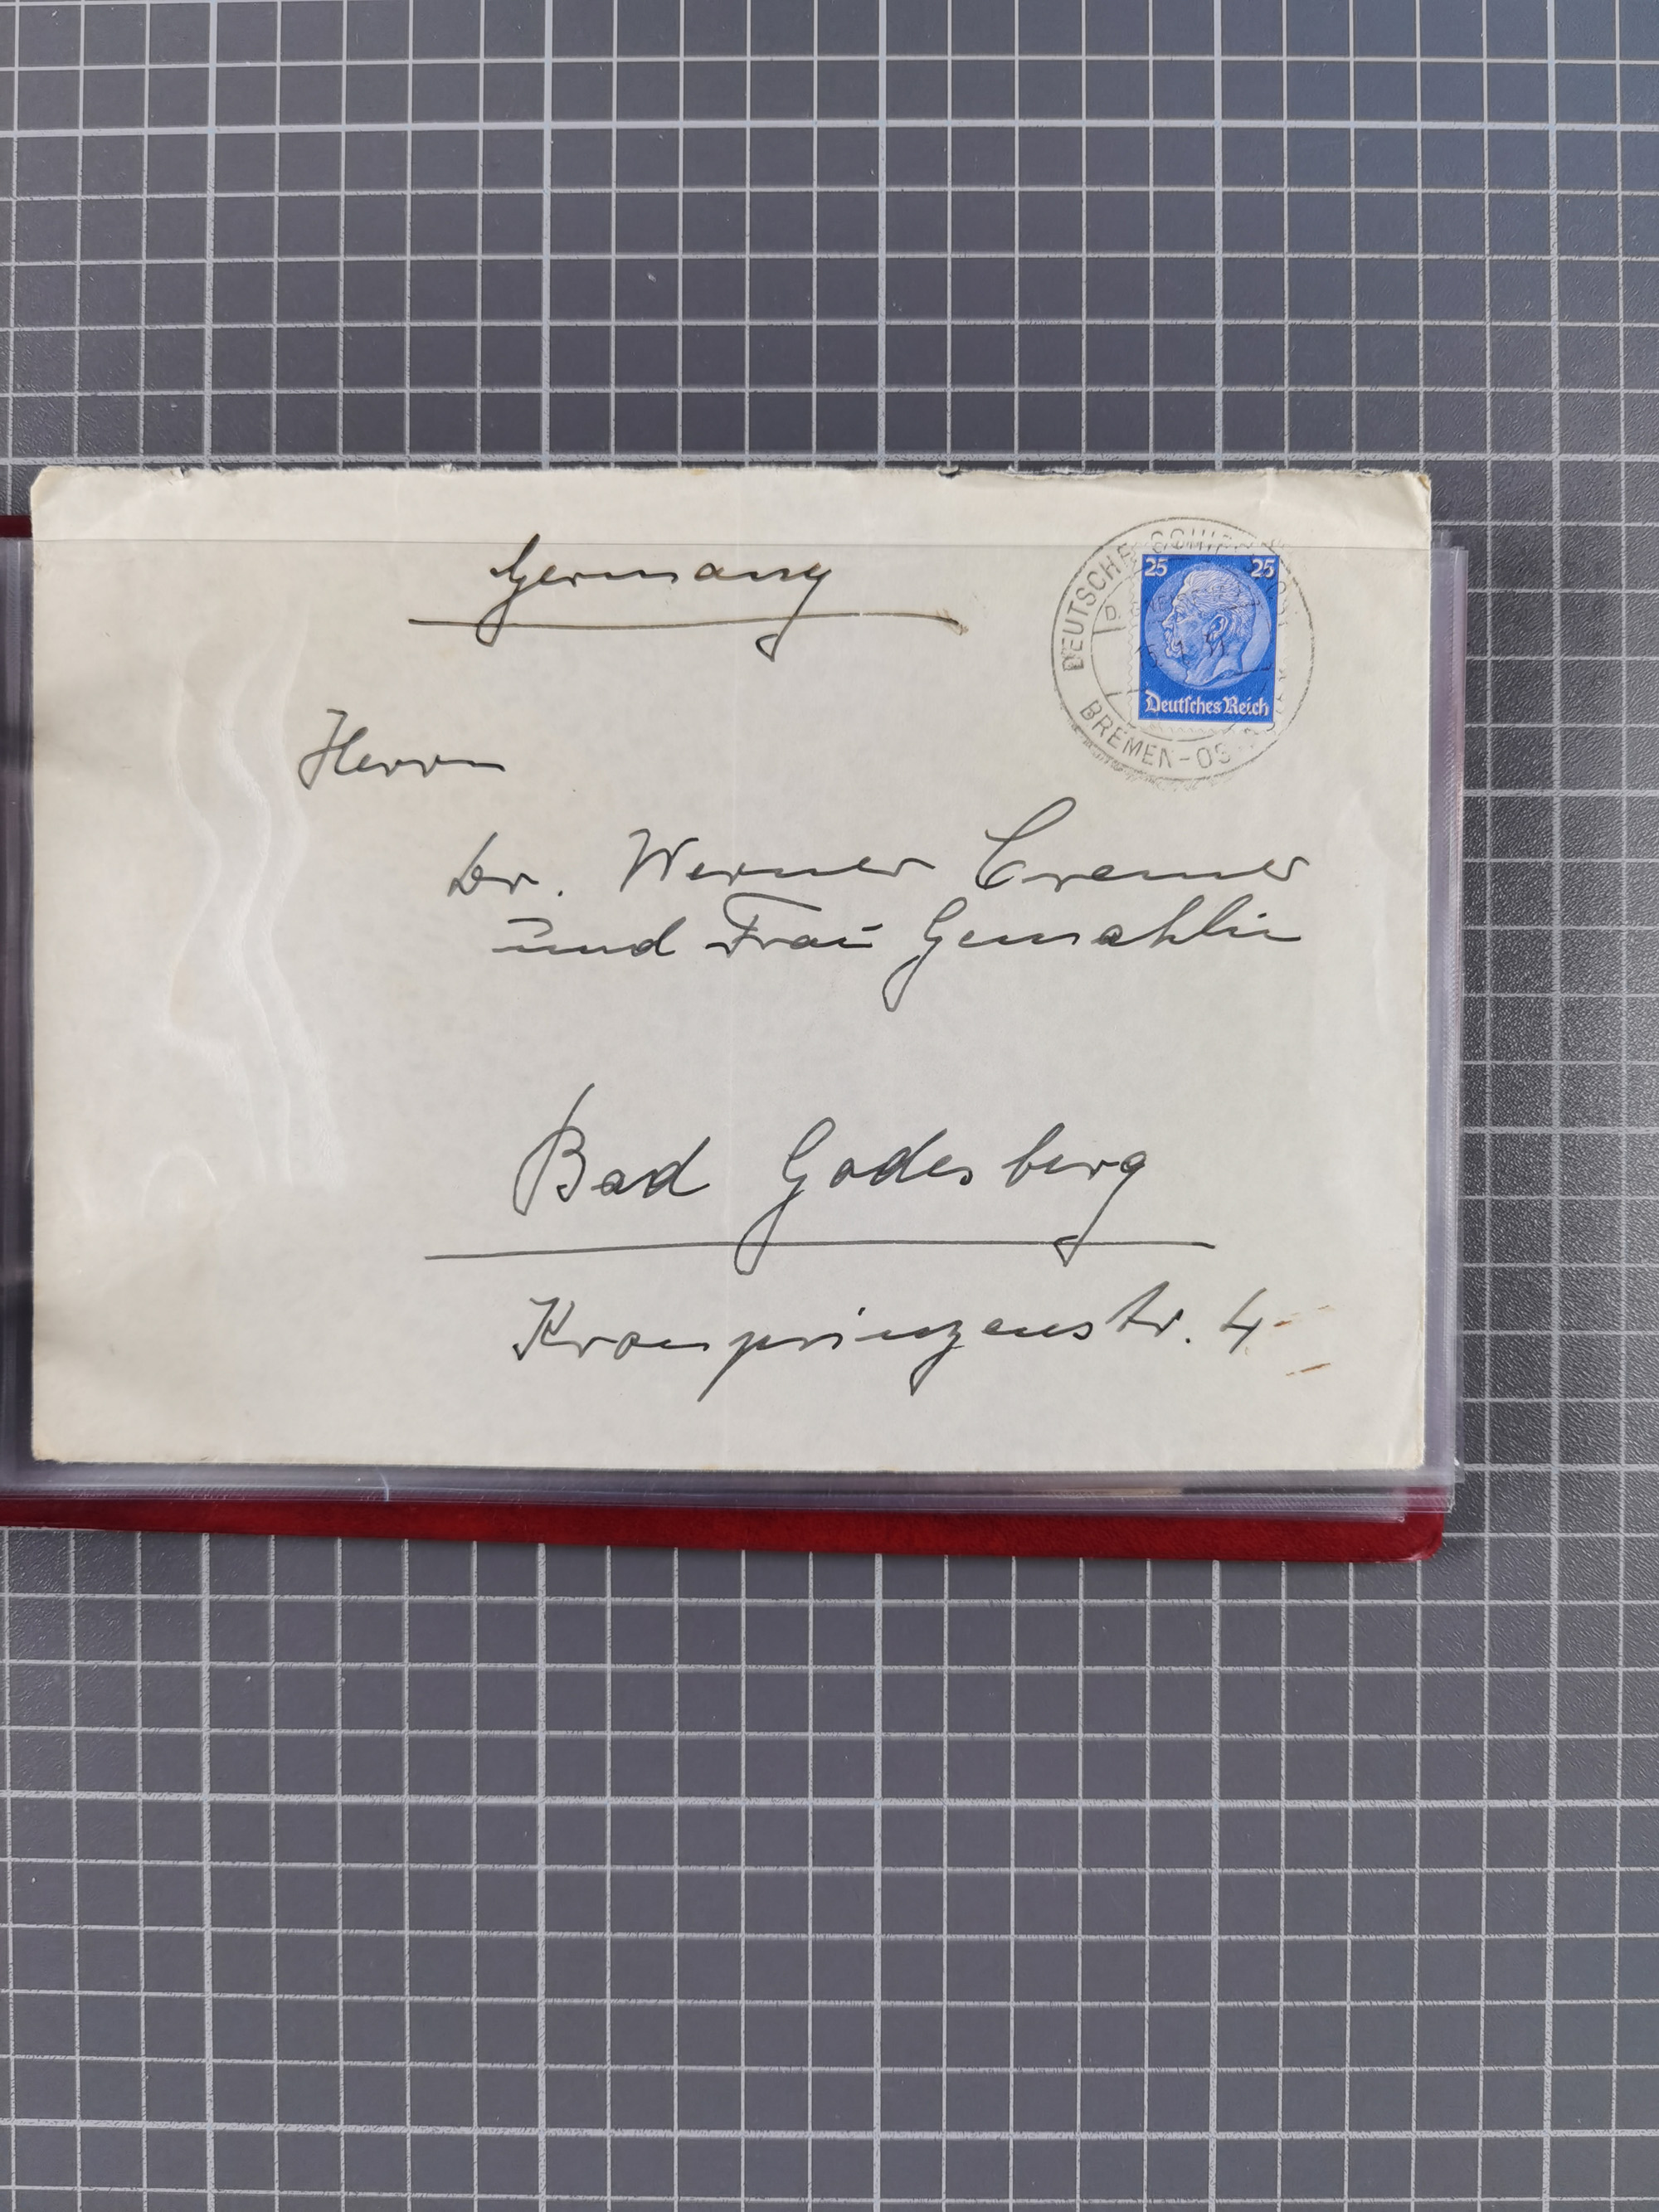 Germany
25 25
Deutsches Reich
DEUTSCHE
BREMEN-OS
Herrn
Dr. Werner Cremer
und Frau Gemahlin
Bad Godesberg
Kronprinzenstr. 4